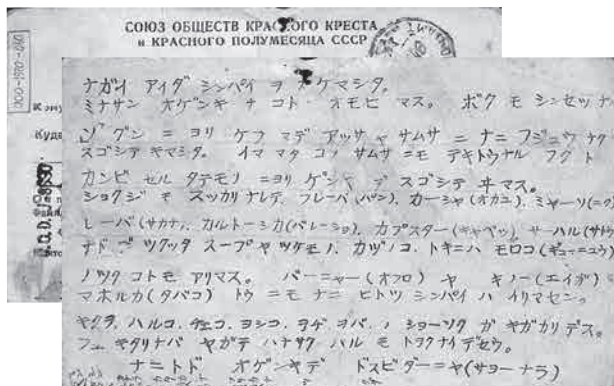 СОЮЗ ОБЩЕСТВ КРАСНОГО КРЕСТА
и КРАСНОГО ПОЛУМЕСЯЦА СССР
ナガイ アイダ シンパイ ヲ カケマシタ。
ミナサン オゲンキ ナ コト オモヒ マス。 ボク モ シンセツ ナ
グン ニ ヨリ ケフ マデ アツサ ヤ サムサ ニ ナニ フジユウ ナク
スゴシテ キマシタ。 イマ マタ コノ サムサ ニモ テキトウナル フク ト
カンビ セル タテモノ ニヨリ ゲンキ デ スゴシテ ヰマス。
ショクジ モ スッカリ ナレテ、フレーバ(パン)、カーシャ(オカユ)、ミャーソ(ニク)
レーバ(サカナ)、カルトーシカ(バレーショ)、カプスター(キャベツ)、サーハル(サトウ
ナド デ ツクッタ スープ ヤ ツケモノ、カヅノコ、トキニハ モロコ(ギューニュウ)
ノ ツク コトモ アリマス。 バーニャー(オフロ) ヤ キノー(エイガ)
マホルカ(タバコ) トウ ニモ ナニ ヒトツ シンパイ ハ イリマセン。
ハルコ、チエコ、ヨシコ、 ノ ショーソク ガ キガカリ デス。
フユ キタリナバ ヤガテ ハナサク ハル モ トヲクナイデセウ。
ナニトゾ オゲンキデ ドスビダーニヤ(サヨーナラ)